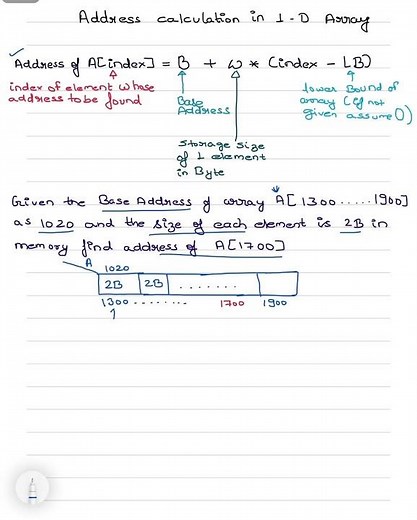 Address calculation in 1-D Array
Address of A[index] = B + W * (index - LB)
index of element whose
address to be found
Base
Address
lower Bound of
array (if not
given assume 0)
Storage Size
of 1 element
in Byte
Given the Base Address of array A[1300.....1900]
as 1020 and the size of each element is 2B in
memory find address of A[1700]
A 1020
2B 2B .......
1300 ........ 1700 1900